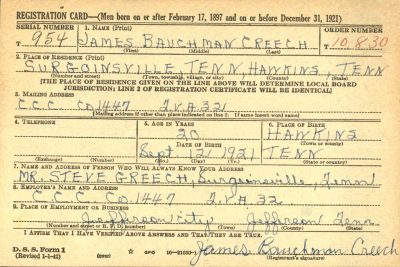 REGISTRATION CARD—(Men born on or after February 17, 1897 and on or before December 31, 1921)
SERIAL NUMBER 1. NAME (Print) ORDER NUMBER
T 954 JAMES BAUCHMAN CREECH T 10,830
(First) (Middle) (Last)
2. PLACE OF RESIDENCE (Print)
SURGOINSVILLE TENN HAWKINS, TENN
(Number and street) (Town, township, village, or city) (County) (State)
[THE PLACE OF RESIDENCE GIVEN ON THE LINE ABOVE WILL DETERMINE LOCAL BOARD
JURISDICTION; LINE 2 OF REGISTRATION CERTIFICATE WILL BE IDENTICAL]
3. MAILING ADDRESS
C.C.C. Co. 1447 T.V.A. 32
[Mailing address if other than place indicated on line 2. If same insert word same]
4. TELEPHONE 5. AGE IN YEARS 6. PLACE OF BIRTH
20 HAWKINS
DATE OF BIRTH (Town or county)
Sept. 12, 1921 TENN
(Exchange) (Number) (Mo.) (Day) (Yr.) (State or country)
7. NAME AND ADDRESS OF PERSON WHO WILL ALWAYS KNOW YOUR ADDRESS
MR. STEVE CREECH, Surgoinsville, Tenn
8. EMPLOYER'S NAME AND ADDRESS
C.C.C. Co. 1447 T.V.A. 32
9. PLACE OF EMPLOYMENT OR BUSINESS
Jefferson City Jefferson Tenn
(Number and street or R. F. D. number) (Town) (County) (State)
I AFFIRM THAT I HAVE VERIFIED ABOVE ANSWERS AND THAT THEY ARE TRUE.
D. S. S. Form 1
(Revised 1-1-42) (over) James Bauchman Creech
(Registrant's signature)